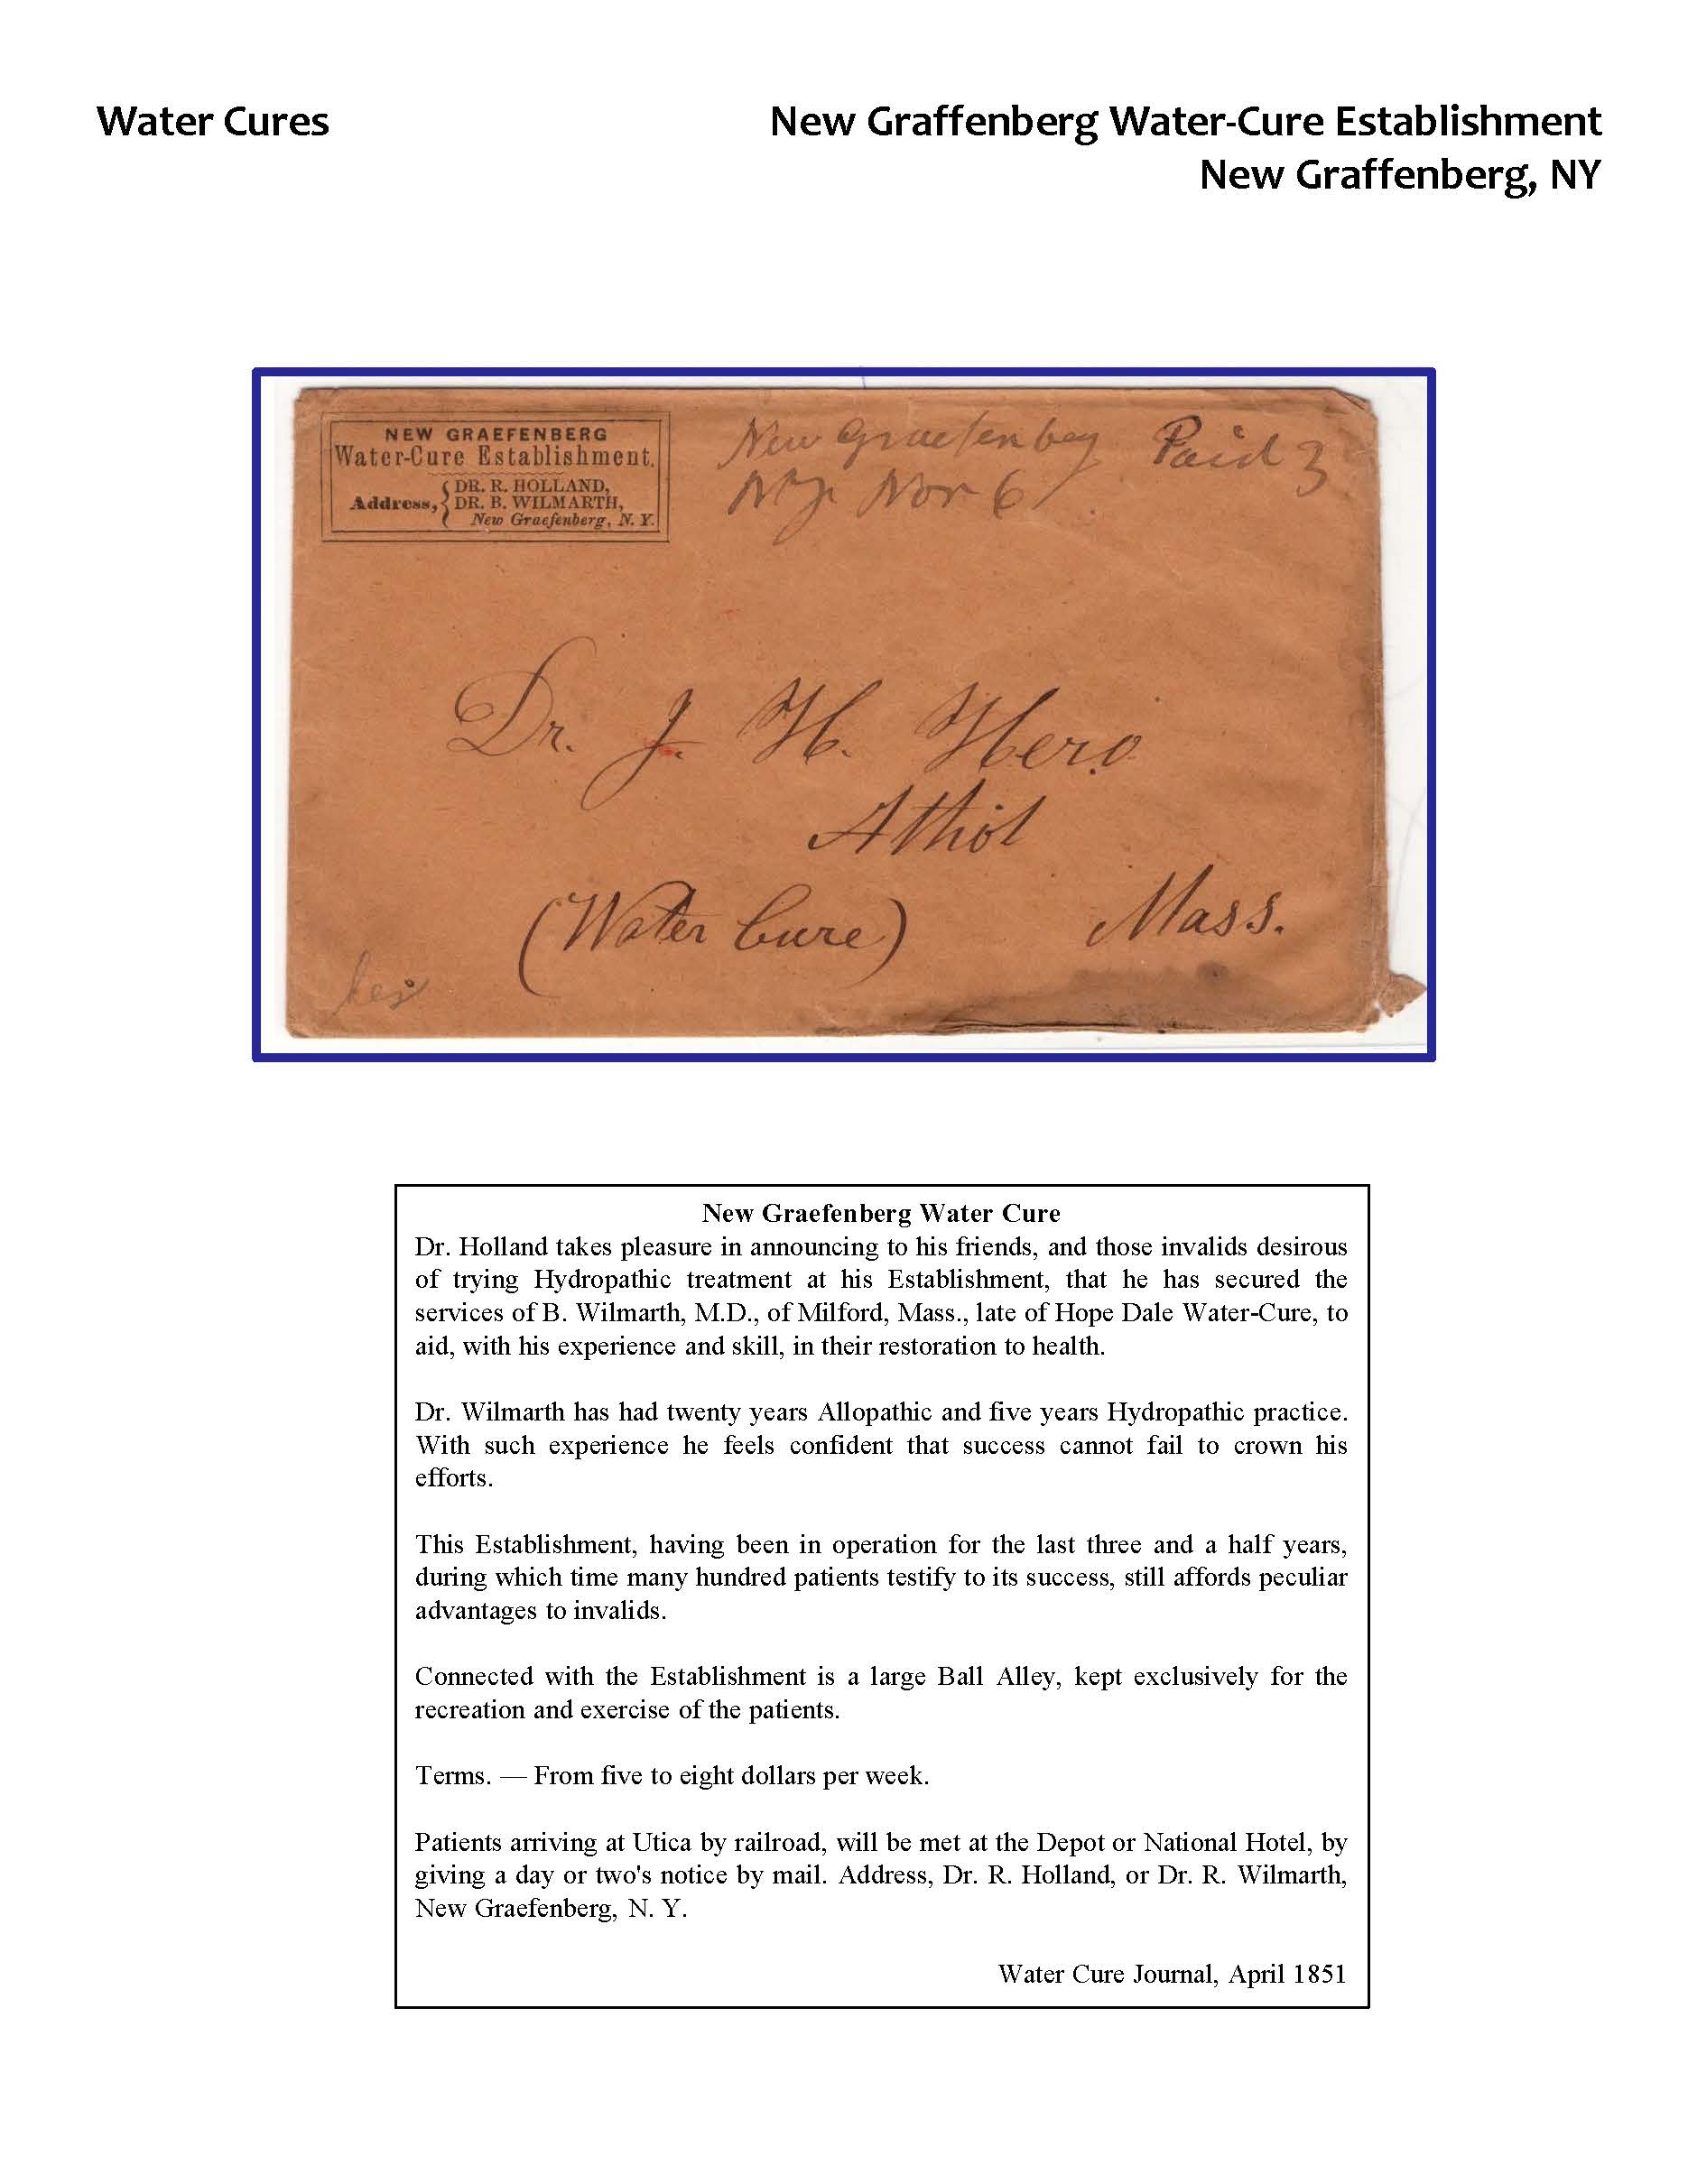 Water Cures
New Graffenberg Water-Cure Establishment
New Graffenberg, NY
NEW GRAEFENBERG
Water-Cure Establishment.
Address, { DR. R. HOLLAND,
DR. B. WILMARTH,
New Graefenberg, N. Y.
New Graefenberg Paid 3
N.Y. Nov 6
Dr. J. H. Hero
Athol
(Water Cure) Mass.
New Graefenberg Water Cure
Dr. Holland takes pleasure in announcing to his friends, and those invalids desirous
of trying Hydropathic treatment at his Establishment, that he has secured the
services of B. Wilmarth, M.D., of Milford, Mass., late of Hope Dale Water-Cure, to
aid, with his experience and skill, in their restoration to health.
Dr. Wilmarth has had twenty years Allopathic and five years Hydropathic practice.
With such experience he feels confident that success cannot fail to crown his
efforts.
This Establishment, having been in operation for the last three and a half years,
during which time many hundred patients testify to its success, still affords peculiar
advantages to invalids.
Connected with the Establishment is a large Ball Alley, kept exclusively for the
recreation and exercise of the patients.
Terms. — From five to eight dollars per week.
Patients arriving at Utica by railroad, will be met at the Depot or National Hotel, by
giving a day or two's notice by mail. Address, Dr. R. Holland, or Dr. R. Wilmarth,
New Graefenberg, N. Y.
Water Cure Journal, April 1851